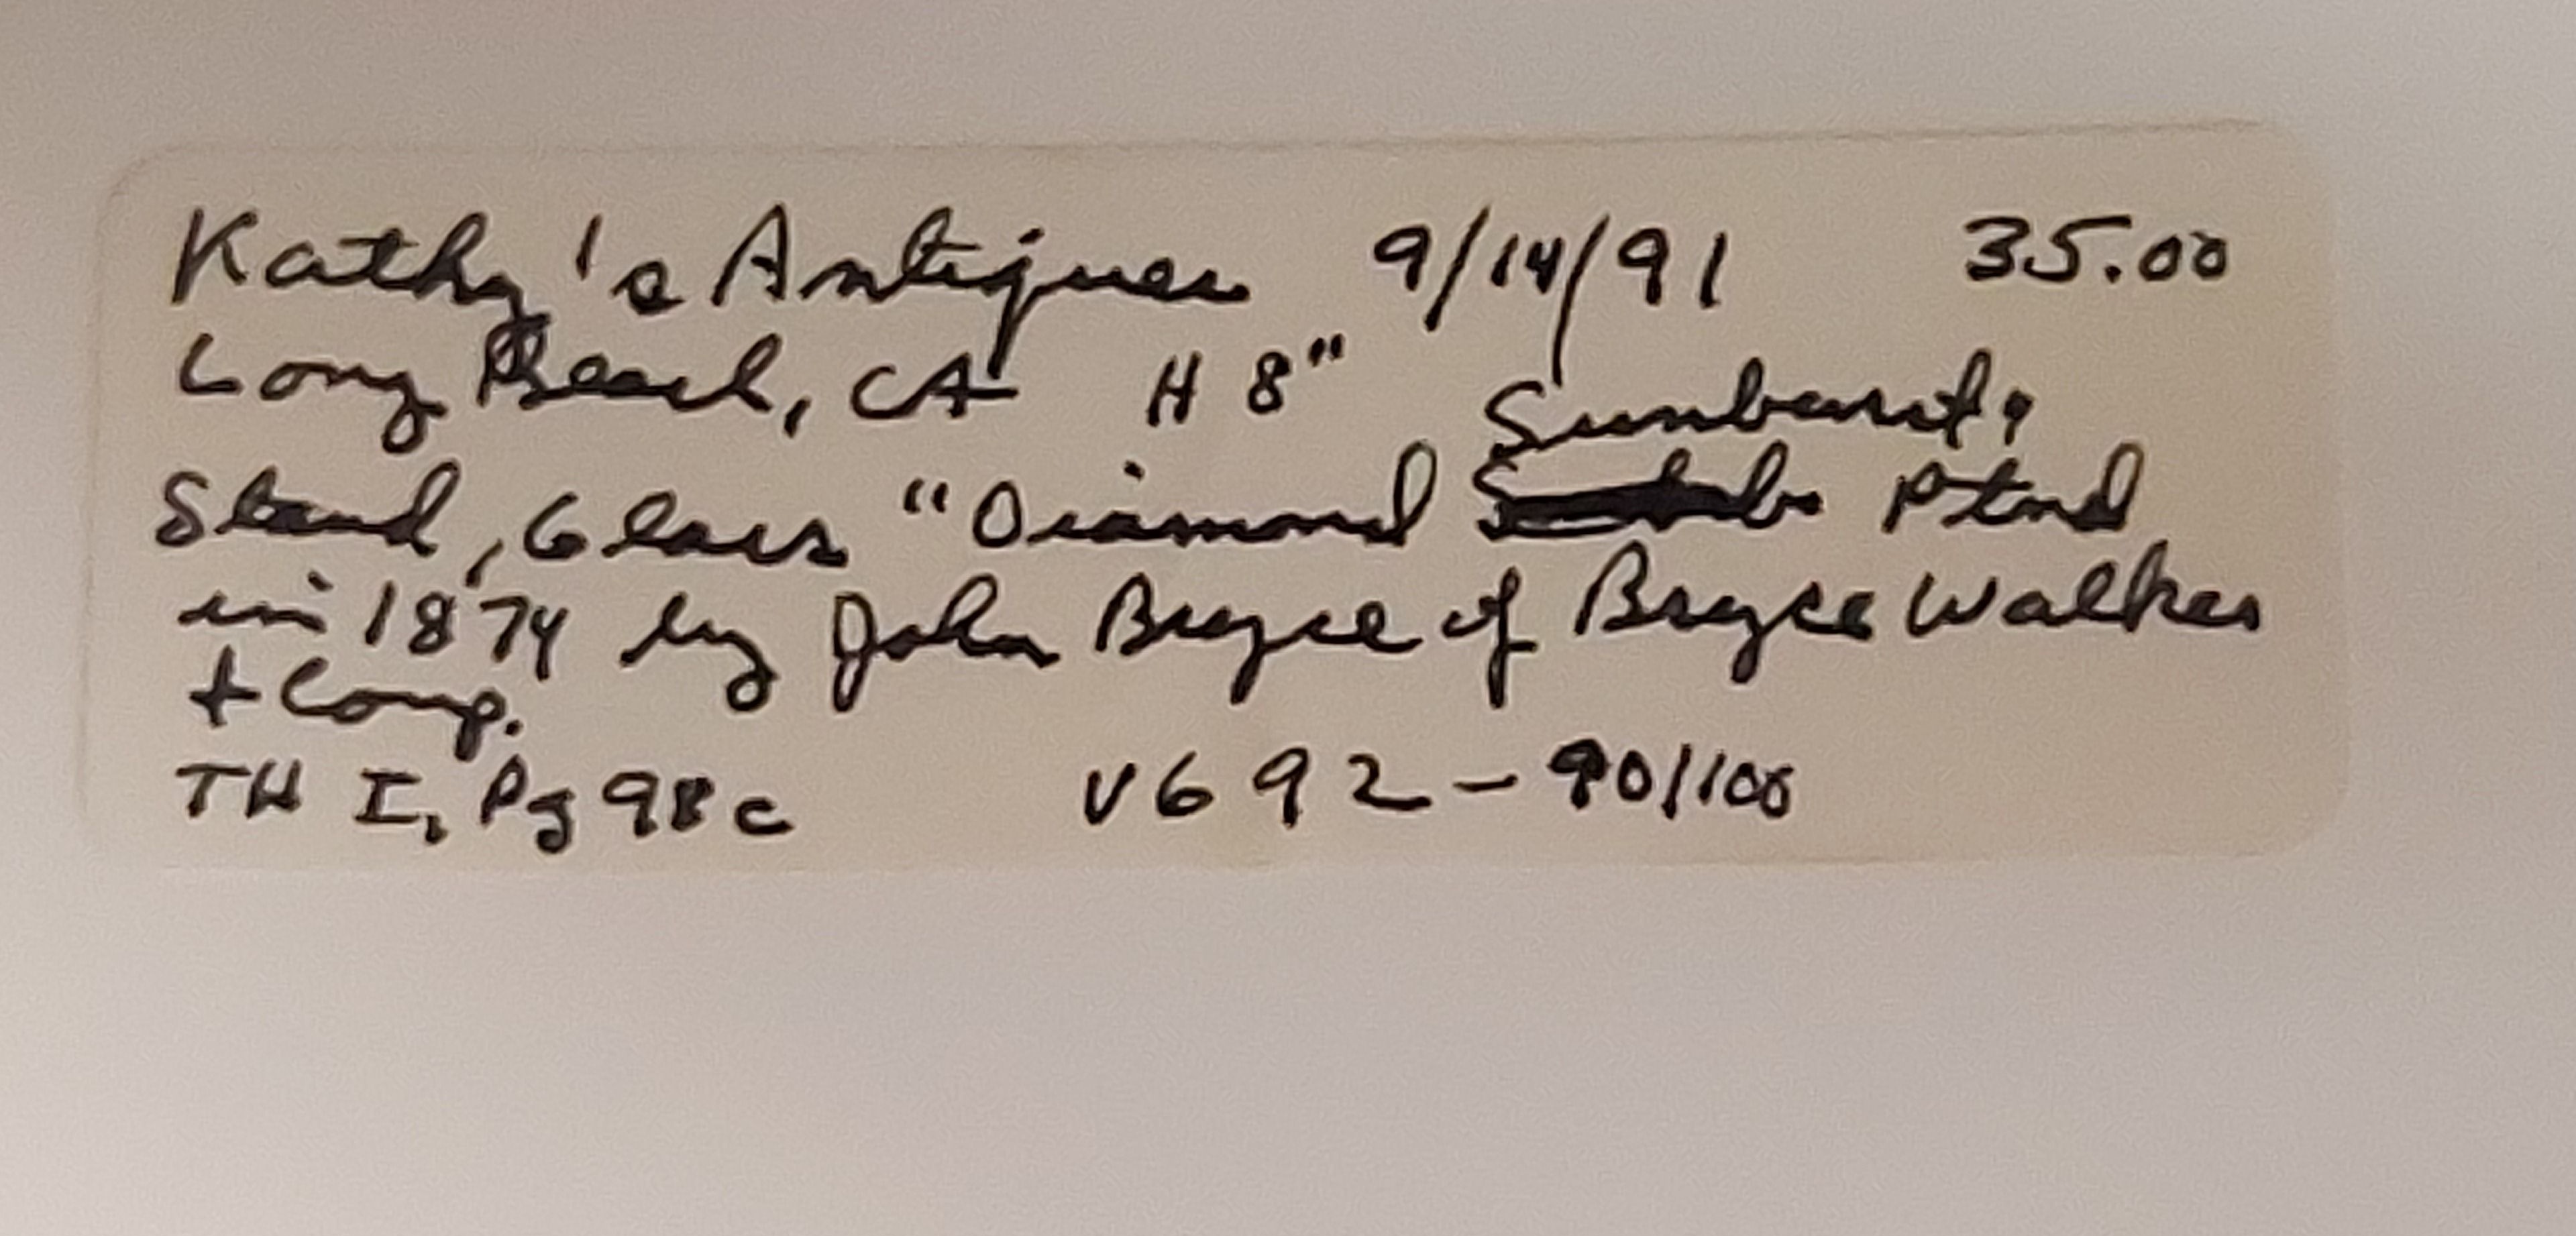 Kathy's Antiques 9/14/91 35.00
Long Beach, CA H 8"
Sunburst,
Stand, Glass "Diamond Ptnd
in 1874 by John Bryce of Bryce Walker
+ Comp.
TH I, Pg 98c V692-90/100